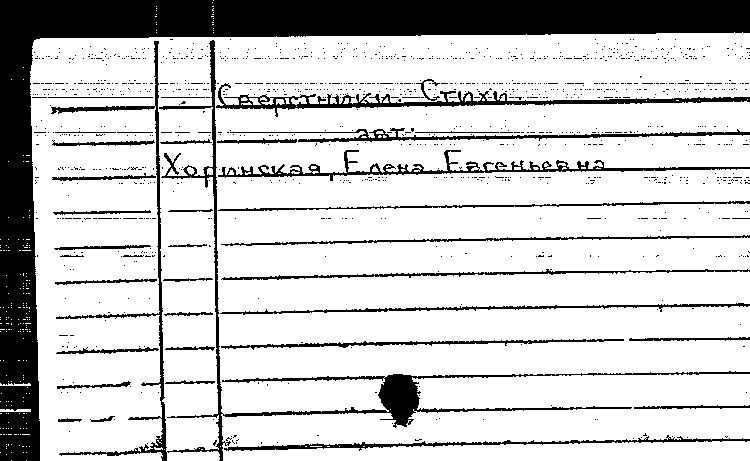 Сверстники. Стихи.
авт:
Хоринская, Елена Евгеньевна